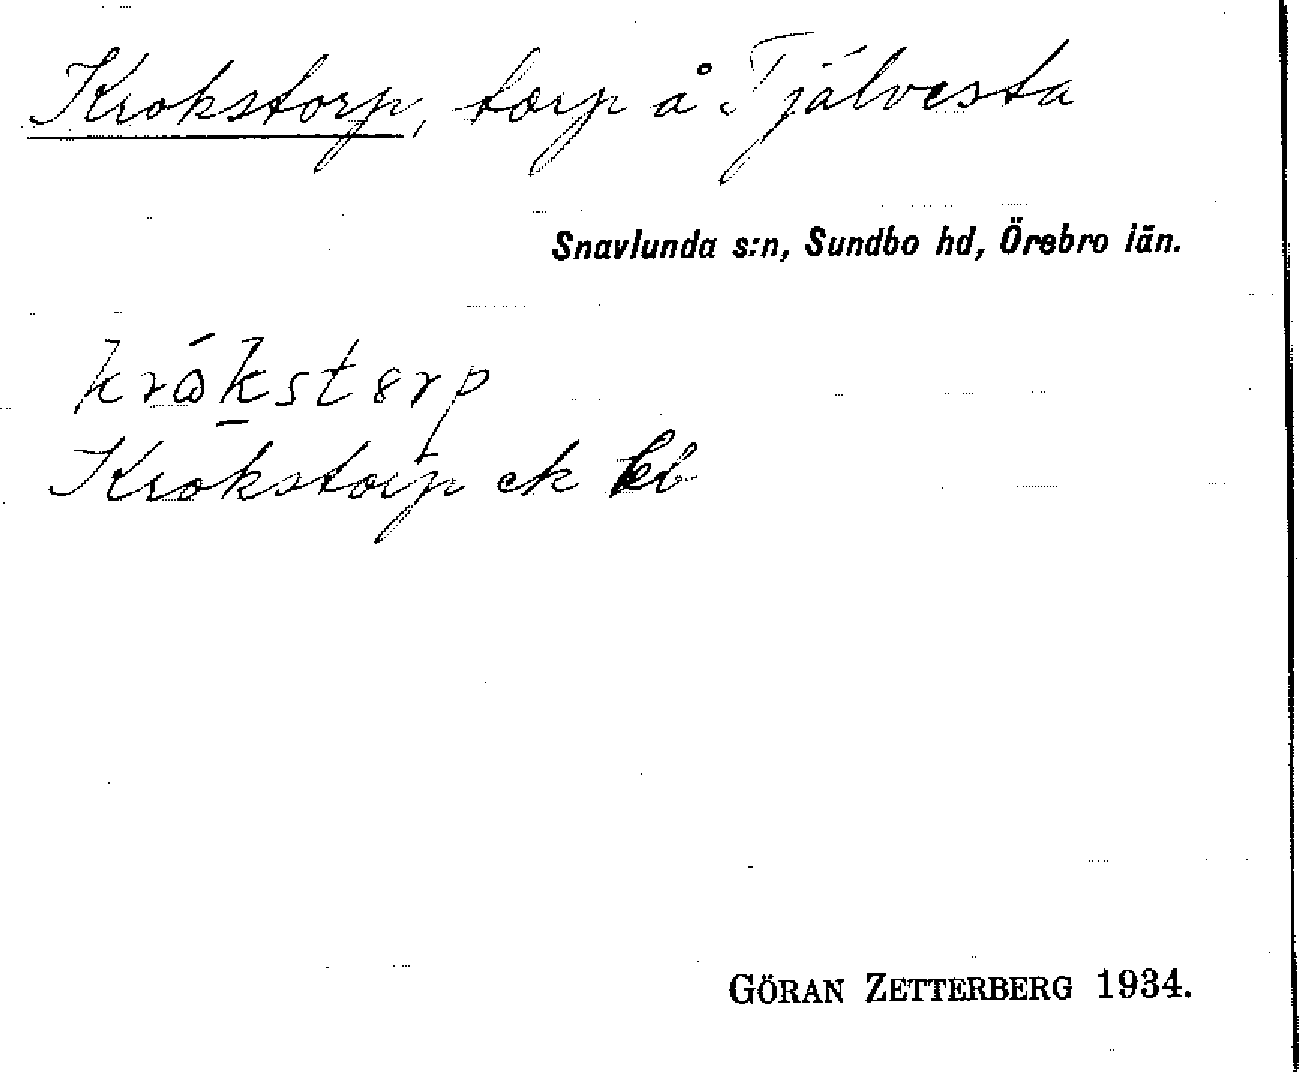 Krokstorp, torp å Tjälvesta
Snavlunda s:n, Sundbo hd, Örebro län.
krókstorp
Krokstorp ek kb
GÖRAN ZETTERBERG 1934.